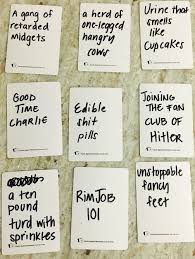 A gang of
retarded
midgets
a herd of
one-legged
hangry
cows
Urine that
smells
like
Cupcakes
GOOD
TIME
CHARLIE
Edible
shit
pills
JOINING THE
FAN
CLUB OF
HITLER
a ten
pound
turd with
sprinkles
RIMJOB
101
unstoppable
fancy
feet